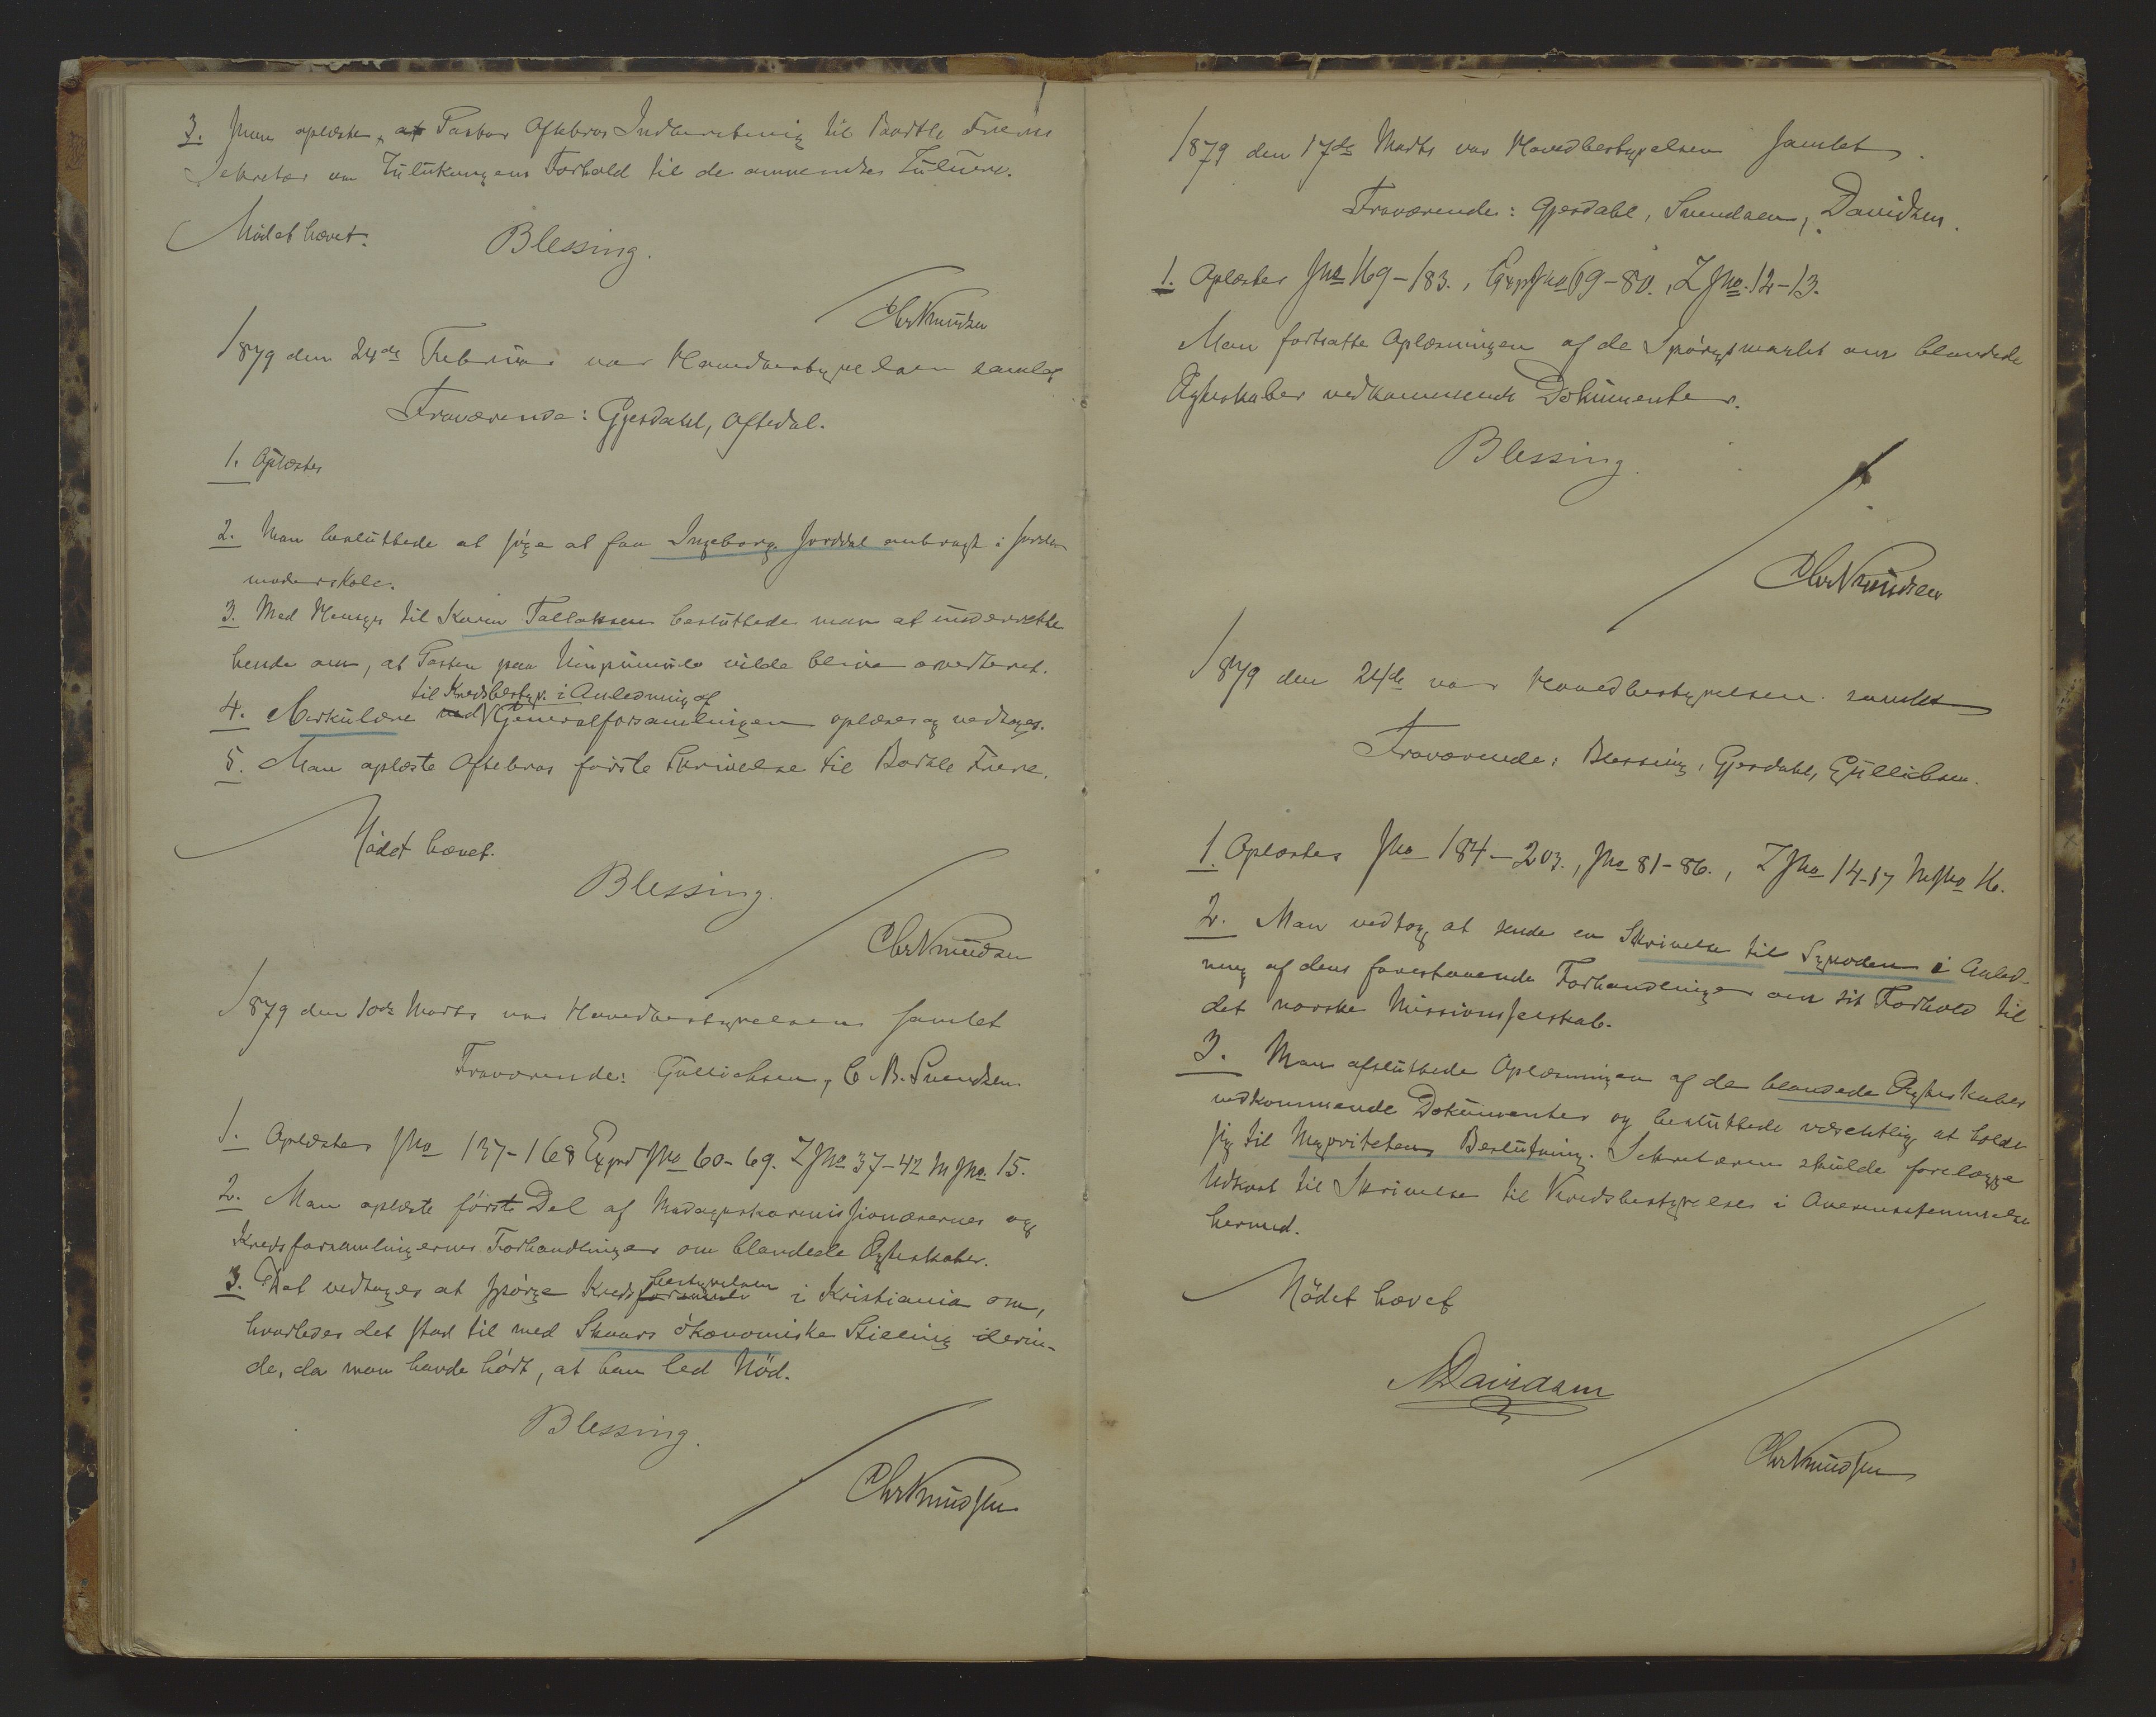 3. Man oplæste Pastor Oftebros Indberetning til Bartle Freres
Sekretær om Zulukongens Forhold til de omvendte Zuluere.
Mødet hævet.
Blessing.
Chr Knudsen
1879 den 24de Februar var Hovedbestyrelsen samlet
Fraværende: Gjerdahl, Oftedal.
1. Oplæstes
2. Man besluttede at søge at faa Ingeborg Jorddal anbragt i Jorde-
moderskole.
3. Med Hensyn til Karen Tallaksen besluttede man at underrette
hende om, at Posten paa Umpumulo vilde blive averteret.
til Kredsbestyr. i Anledning af
4. Cirkulære ved Generalforsamlingen oplæses og vedtages.
5. Man oplæste Oftebros første Skrivelse til Bartle Frere.
Mødet hævet.
Blessing.
Chr Knudsen
1879 den 10de Marts var Hovedbestyrelsen samlet
Fraværende: Gullichsen, C. B. Svendsen
1. Oplæstes Jno 137-168 Exped Jno 60-69. Z Jno 37-42 M Jno. 15.
2. Man oplæste første Del af Madagaskarmissionærernes og
Kredsforsamlingernes Forhandlinger om blandede Ægteskaber.
bestyrelsen
3. Det vedtages at spørge Kreds i Kristiania om,
hvorledes det stod til med Skaars økonomiske Stilling derin-
de, da man havde hørt, at han led Nød.
Blessing.
Chr Knudsen
1879 den 17de Marts var Hovedbestyrelsen samlet.
Fraværende: Gjerdahl, Svendsen, Davidsen.
1. Oplæstes Jno 169-183., Exp Jno 69-80., Z Jno. 12-13.
Man fortsatte Oplæsningen af de Spørgsmaalet om blandede
Ægteskaber vedkommende Dokumenter.
Blessing
Chr Knudsen
1879 den 24de var Hovedbestyrelsen samlet
Fraværende: Blessing, Gjerdahl, Gullichsen.
1. Oplæstes Jno 184-203., Jno 81-86., Z Jno 14-17 M Jno 16.
2. Man vedtog at sende en Skrivelse til Synoden i Anled-
ning af dens forestaaende Forhandlinger om sit Forhold til
det norske Missionsselskab.
3. Man afsluttede Oplæsningen af de blandede Ægteskaber
vedkommende Dokumenter og besluttede at holde
sig til Majoritetens Beslutning. Sekretæren skulde forelægge
Udkast til Skrivelse til Kredsbestyrelser i Overensstemmelse
hermed.
Mødet hævet
Davidsen
Chr Knudsen